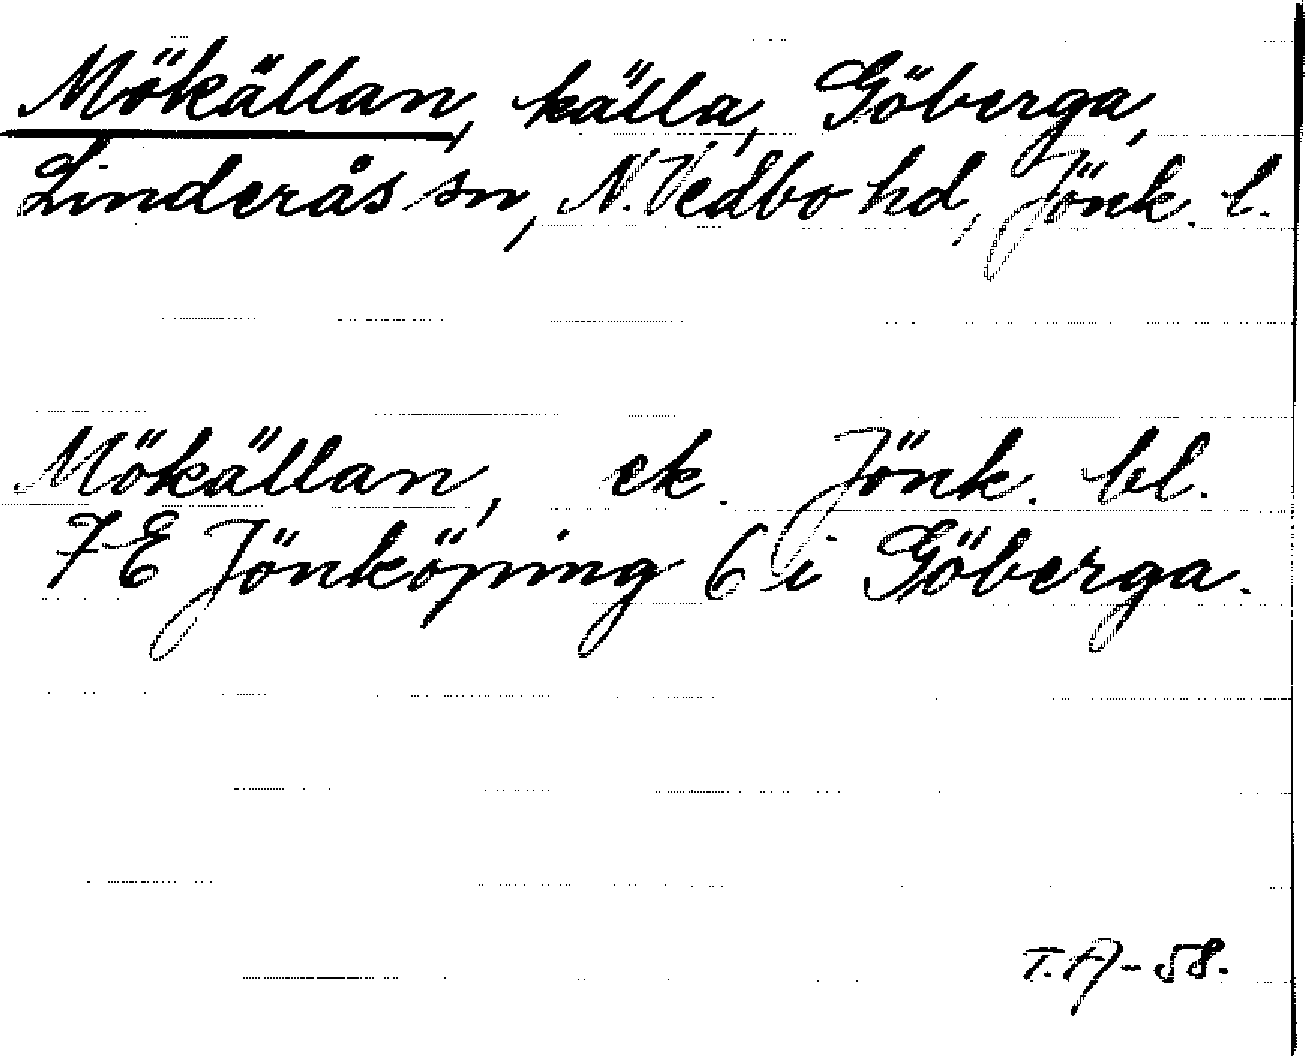 Mökällan, källa, Göberga,
Linderås sn, N. Vedbo hd, Jönk. l.
Mökällan, ek. Jönk. bl.
7 E Jönköping 6 i Göberga.
T. A - 58.